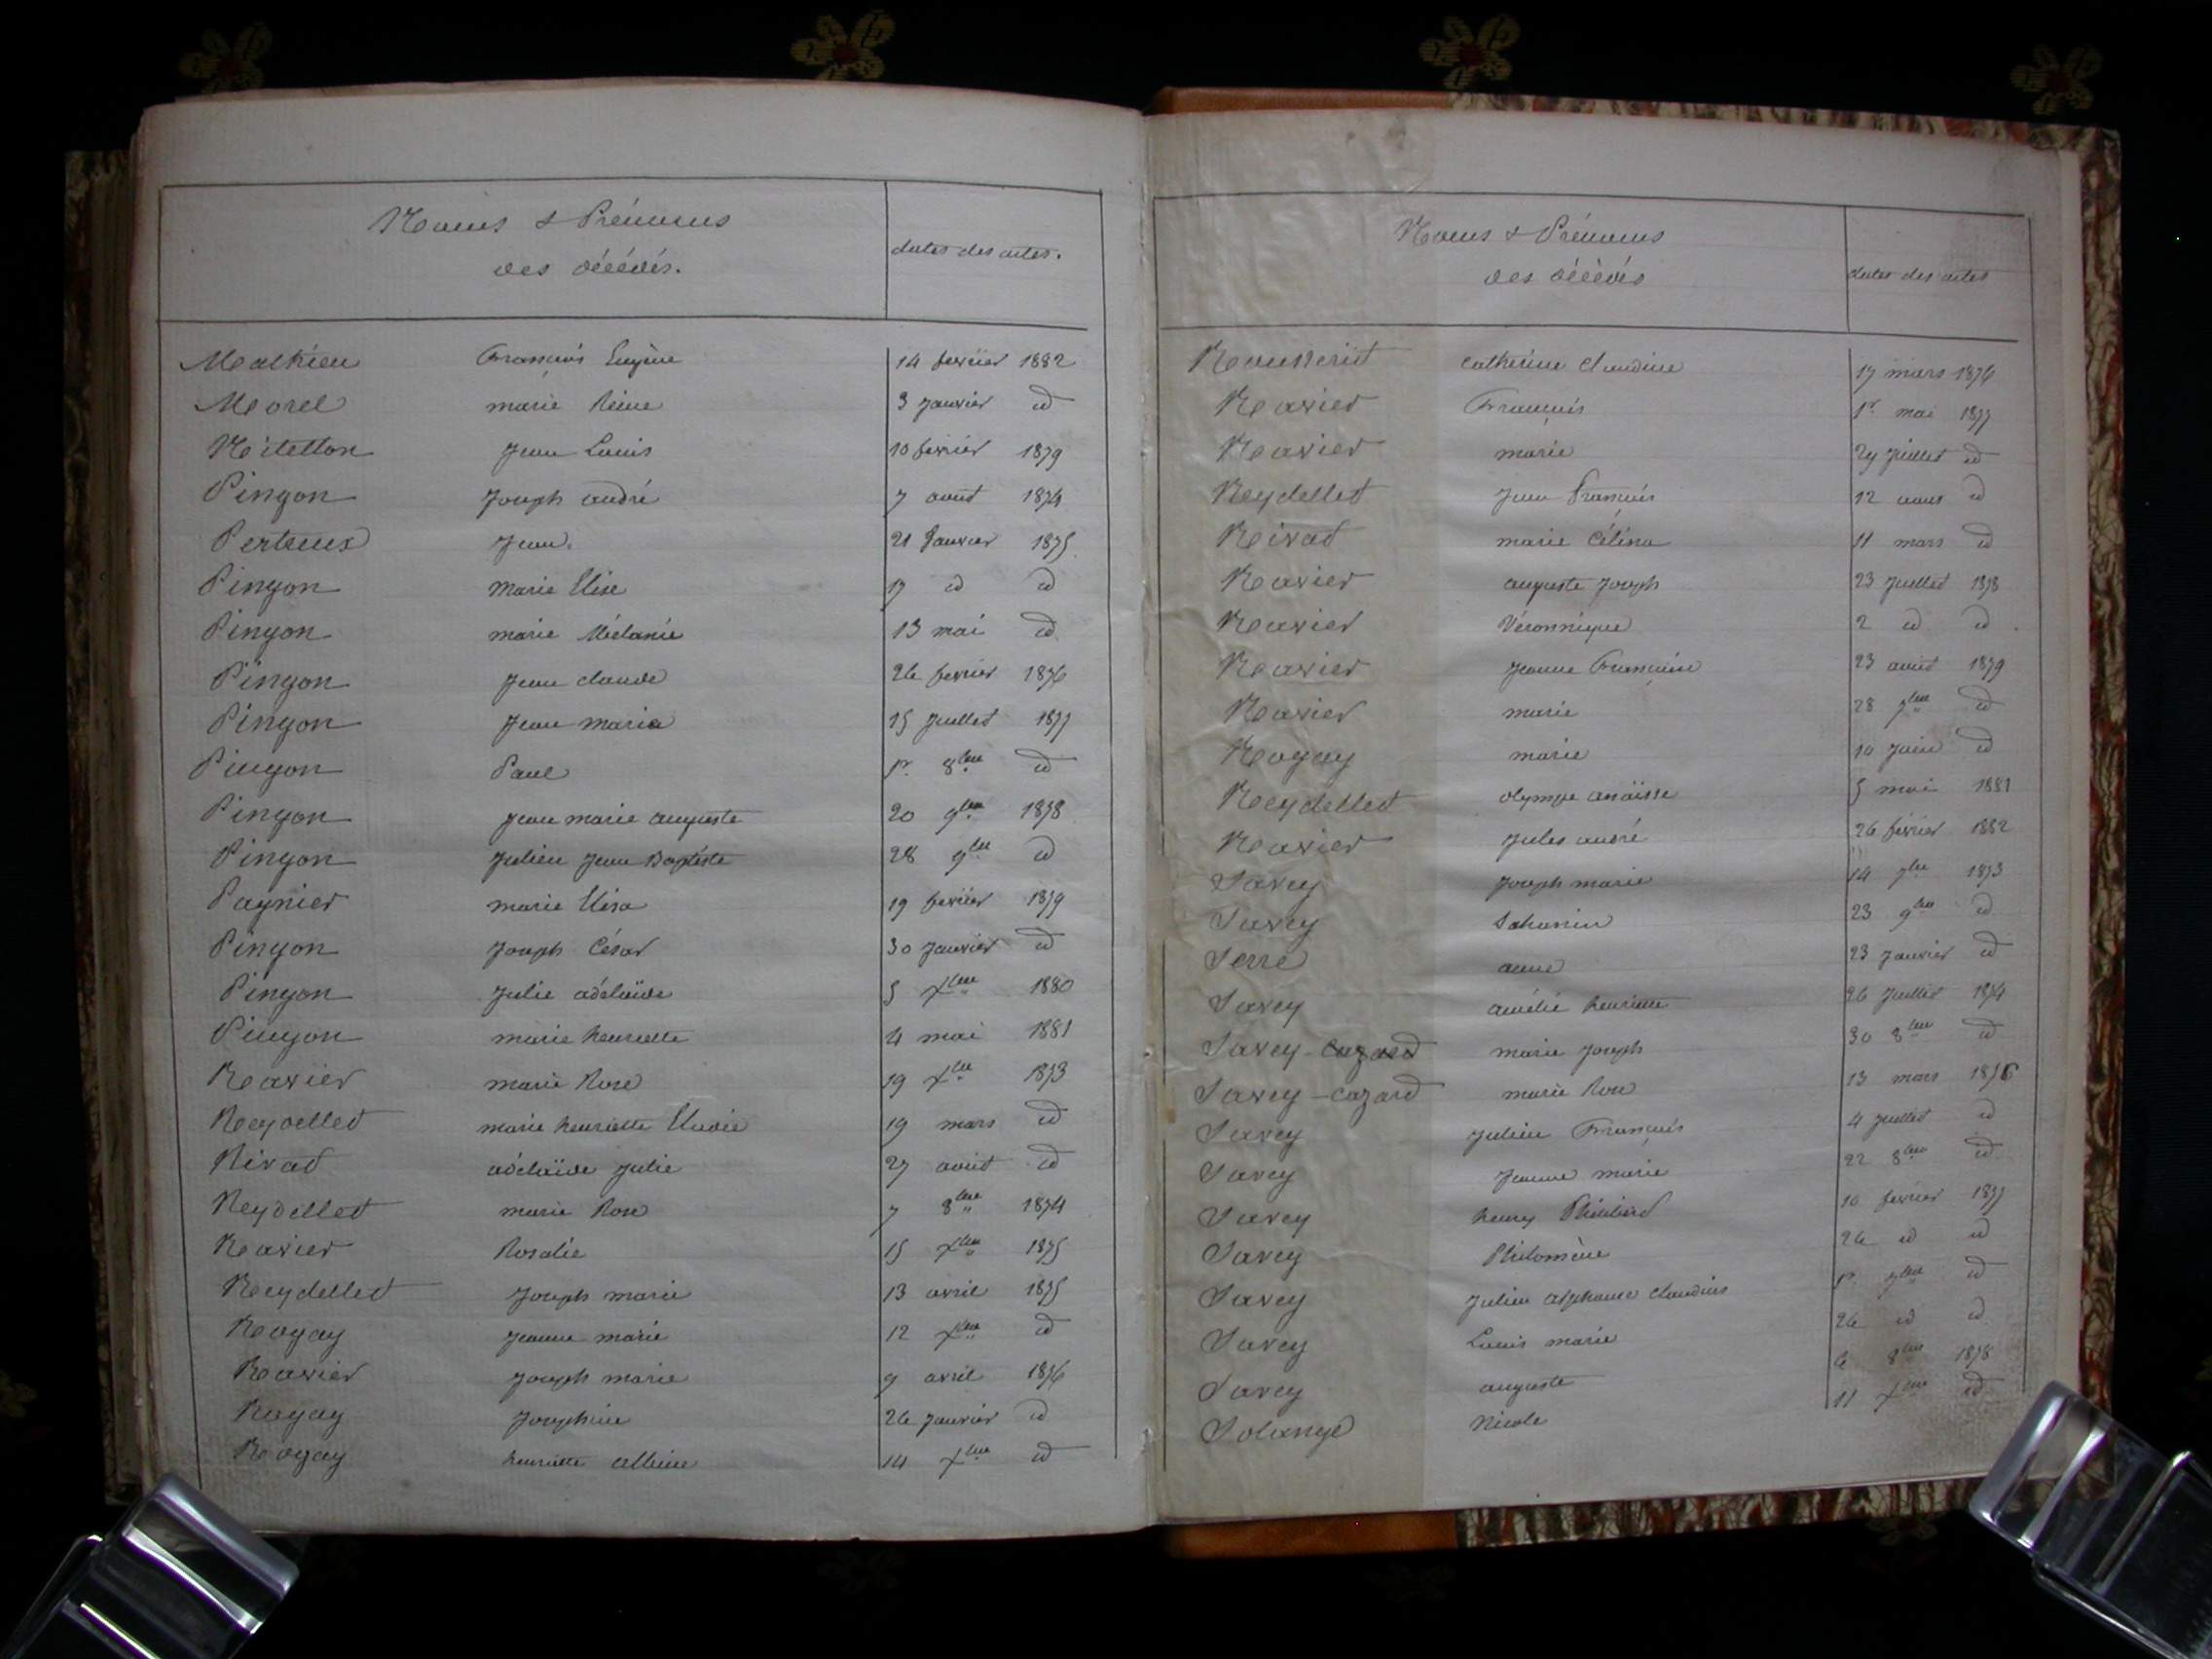 Noms & Prénoms
des décédés.
dates des actes.
Mathieu François Eugène 14 fevrier 1882
Morel marie Reine 3 Janvier id
Nitellon Jean Louis 10 fevrier 1879
Pingon Joseph andré 7 août 1874
Perteus Jean. 21 Janvier 1875
Pingon Marie Elise 17 id id
Pingon marie Mélanie 13 mai id
Pingon Jean claude 26 fevrier 1876
Pingon Jean maria 15 Juillet 1877
Pingon Paul 1er 8bre id
Pingon Jean marie auguste 20 9bre 1878
Pingon Julien Jean Baptiste 28 9bre id
Pagnier marie Elisa 19 fevrier 1879
Pingon Joseph César 30 Janvier id
Pingon Julie adélaïde 5 Xbre 1880
Pingon marie henriette 4 mai 1881
Ravier marie Rose 19 Xbre 1873
Reydellet marie henriette 19 mars id
Rivat adélaïde Julie 27 août id
Reydellet marie Rose 7 8bre 1874
Ravier Rosalie 15 Xbre 1875
Reydellet Joseph marie 13 avril 1875
Rogay Jeanne marie 12 Xbre id
Ravier Joseph marie 9 avril 1876
Rogay Josephine 26 Janvier id
Rogay henriette albine 14 Xbre id
Noms & Prénoms
des décédés
dates des actes
catherine claudine 17 mars 1876
Ravier François 1er mai 1877
Ravier marie 29 Juillet id
Reydellet Jean François 12 id
Rivat marie Célina 11 mars id
Ravier auguste Joseph 23 Juillet 1878
Ravier Véronnique 2 id id
Ravier Jeanne Françoise 23 août 1879
Ravier marie 28 7bre id
Rogay marie 10 Juin id
Reydellet olympe anaïsse 5 mai 1881
Ravier Jules andré 26 février 1882
Savey Joseph marie 14 7bre 1873
Savey 23 9bre id
Serre anne 23 Janvier id
Savey amélie henriette 26 Juillet 1874
Savey-Cazard marie Joseph 30 8bre id
Savey-cazard marie Rose 13 mars 1876
Savey Julien François 4 Juillet id
Savey Jeanne marie 22 8bre id
Savey henry Philibert 10 fevrier 1877
Savey Philomène 26 id id
Savey Julien alphonse claudius 1er 7bre id
Savey Louis marie 26 id id
Savey auguste 6 8bre 1878
Solange Nicole 11 Xbre id